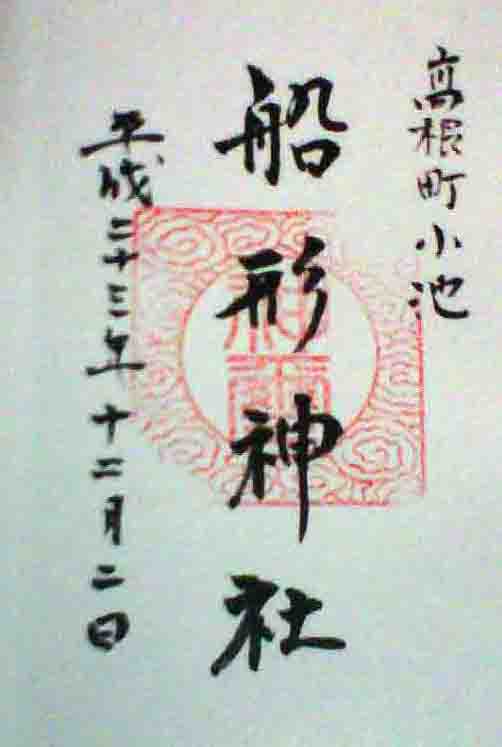 高根町小池
船形神社
平成二十三年十二月二日